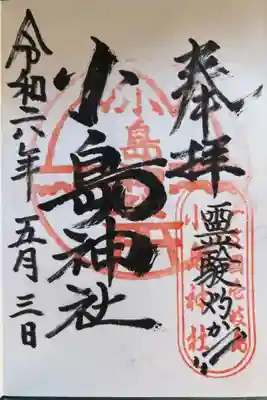 奉拝
霊験灼か
小島神社
令和六年
五月三日
小島
小島神社